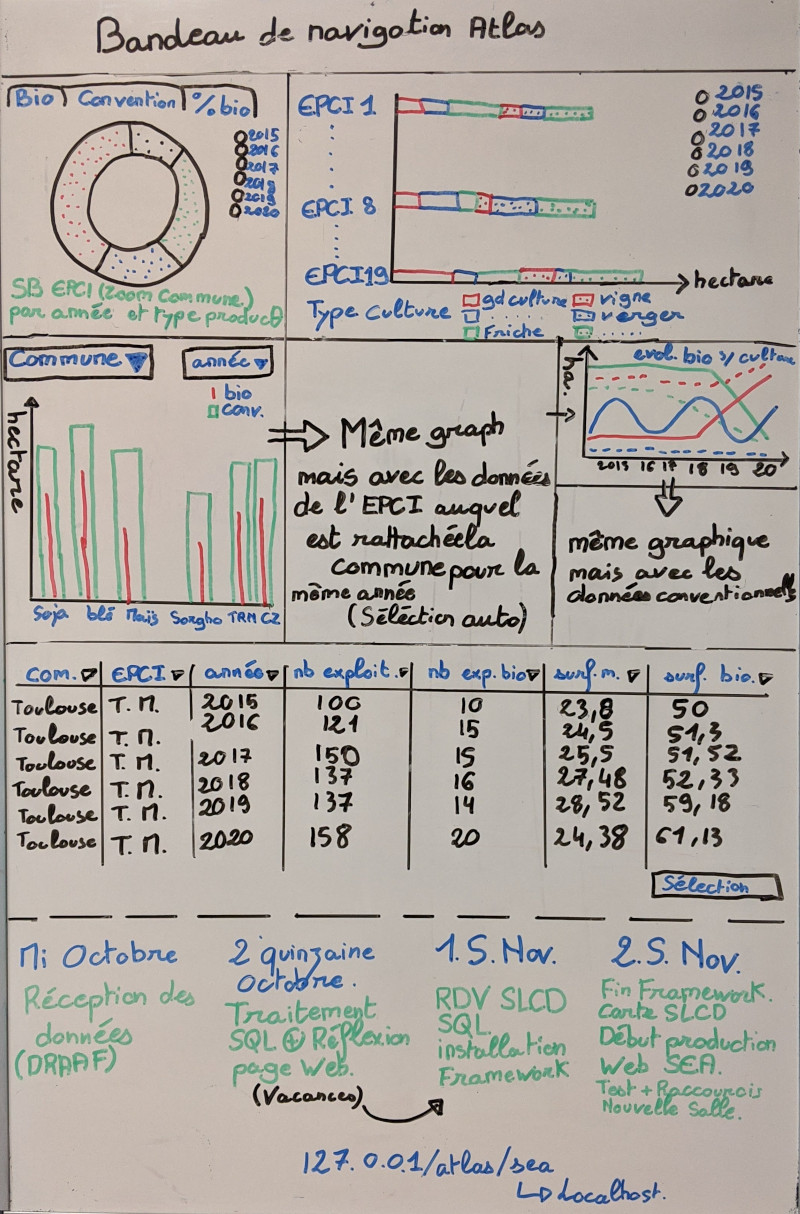 Bandeau de navigation Atlas
Bio Convention % bio
2015
2016
2017
2018
2019
2020
SB EPCI (Zoom Commune)
par année et type product
EPCI 1
EPCI 8
EPCI 19
hectare
2015
2016
2017
2018
2019
2020
Type Culture
gd culture
vigne
verger
Friche
Commune
année
bio
conv.
hectare
Soja blé Maïs Sorgho TRN CZ
Même graph
mais avec les données
de l'EPCI auquel
est rattachée la
Commune pour la
même année
(Séléction auto)
evol. bio s/ culture
ha.
2015 16 17 18 19 20
même graphique
mais avec les
données conventionnels
Com. EPCI année nb exploit. nb exp. bio surf. m. surf. bio.
Toulouse T. M. 2015 100 10 23,8 50
Toulouse T. M. 2016 121 15 24,5 51,3
Toulouse T. M. 2017 150 15 25,5 51,52
Toulouse T. M. 2018 137 16 27,48 52,33
Toulouse T. M. 2019 137 14 28,52 59,18
Toulouse T. M. 2020 158 20 24,38 61,13
Sélection
Mi Octobre
Réception des
données
(DRAAF)
2 quinzaine
Octobre.
Traitement
SQL + Réflexion
page Web.
(Vacances)
1. S. Nov.
RDV SLCD
SQL
installation
Framework
2. S. Nov.
Fin Framework.
Carte SLCD
Début production
Web SEA.
Test + Raccourcis
Nouvelle Salle.
127.0.0.1/atlas/sea
Localhost.